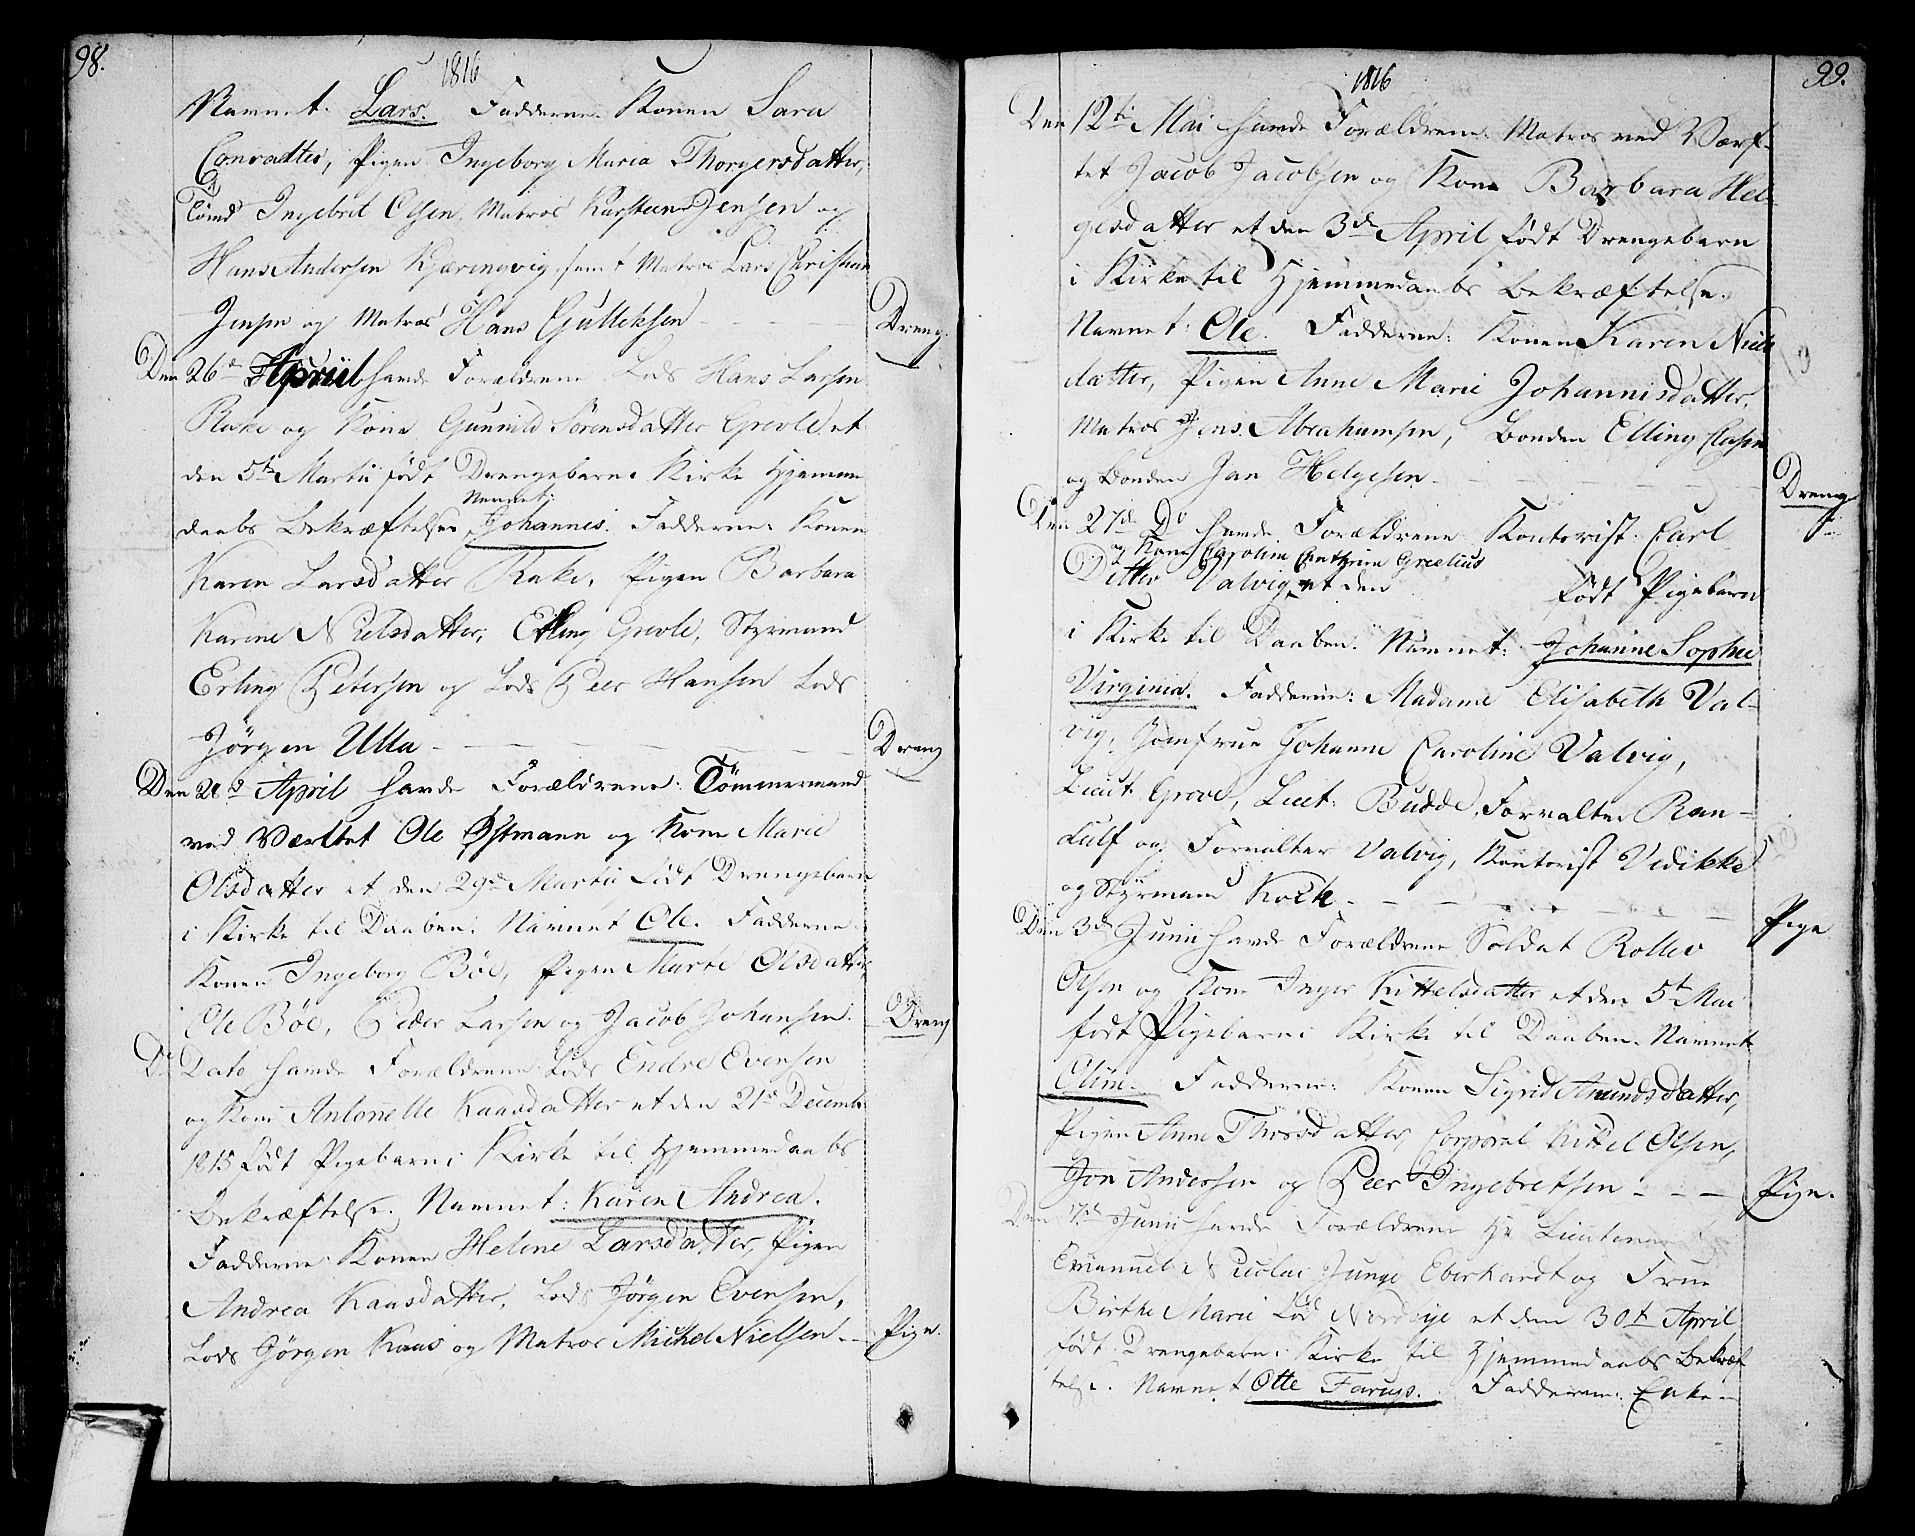 98.
1816
Navnet: Lars. Fadderne: Konen Sara
Conradter, Pigen Ingeborg Maria Thorgersdatter,
Ingebrit Olsen, Matros Karsten Jensen og
Hans Andersen Kjæringvig, samt Matros Lars Christian
Jensen og Matros Hans Gulleksen - - - Dreng.
Den 26de April havde Forældrene Lods Hans Larsen
Rake og Kone Gunnild Sörensdatter Grevle et
den 5te Martii födt Drengebarn i Kirke Hjemme
daabs Bekræftelse Navnet: Johannes. Fadderne: Konen
Karen Larsdatter Rake, Pigen Barbara
Karine Nielsdatter, Elling Grevle, Styrmand
Erling Petersen og Lods Peer Hansen Lods
Jörgen Ulla - - - Dreng
Den 28d April havde Forældrene: Tömmermand
ved Værftet Ole Østmann og Kone Marie
Olsdatter et den 29de Martii födt Drengebarn
i Kirke til Daaben. Navnet Ole. Fadderne:
Konen Ingeborg Böe, Pigen Marte Olsdatter,
Ole Böe, Peder Larsen og Jacob Johansen. Dreng
Do Dato havde Forældrene Lods Endre Evensen
og Kone Antonelle Kaasdatter et den 21de Decembr
1815 födt Pigebarn i Kirke til Hjemmedaabs
Bekræftelse. Navnet: Karen Andrea.
Fadderne: Konen Helene Larsdatter, Pigen
Andrea Kaasdatter, Lods Jörgen Evensen,
Lods Jörgen Kaas og Matros Michel Nielsen - - Pige.
99.
1816
Den 12te Mai havde Forældrene: Matros ved Værf-
tet Jacob Jacobsen og Kone Barbara Hel-
gesdatter et den 3de April födt Drengebarn
i Kirke til Hjemmedaabs Bekræftelse.
Navnet: Ole. Fadderne: Konen Karen Niels
datter, Pigen Anne Marie Johannisdatter,
Matros Jens Abrahamsen, Bonden Elling
og Bonden Jan Helgesen - - - Dreng
Den 27de Do havde Forældrene Kontorist Carl
og Kone Caroline Cathrine Grœlius
Ditlev Valvig et den födt Pigebarn
i Kirke til Daaben. Navnet: Johanne Sophie
Virginia. Fadderne: Madame Elisabeth Val-
vig, Jomfrue Johanne Caroline Valvig,
Lieut Grove, Lieut: Budde, Forvalter Ran-
dulf og Forvalter Valvig, Kontorist Vedikke
og Styrmand - - - Pige
Den 3de Junii havde Forældrene Soldat Rollev
Olsen og Kone Inger Kittelsdatter et den 5te Mai
födt Pigebarn i Kirke til Daaben. Navnet
Oline. Fadderne: Konen Sigrid Amundsdatter,
Pigen Anne Corporal Kittel Olsen,
Jon Andersen og Peer Ingebretsen - - - Pige.
Den 7de Junii havde Forældrene Hr Lieutenant
Emanuel Nicolai Junge Eberhardt og Frue
Birthe Marie Lød et den 30te April
födt Drengebarn i Kirke til Hjemmedaabs Bekræf
telse. Navnet Otte Farups. Fadderne: Enke-